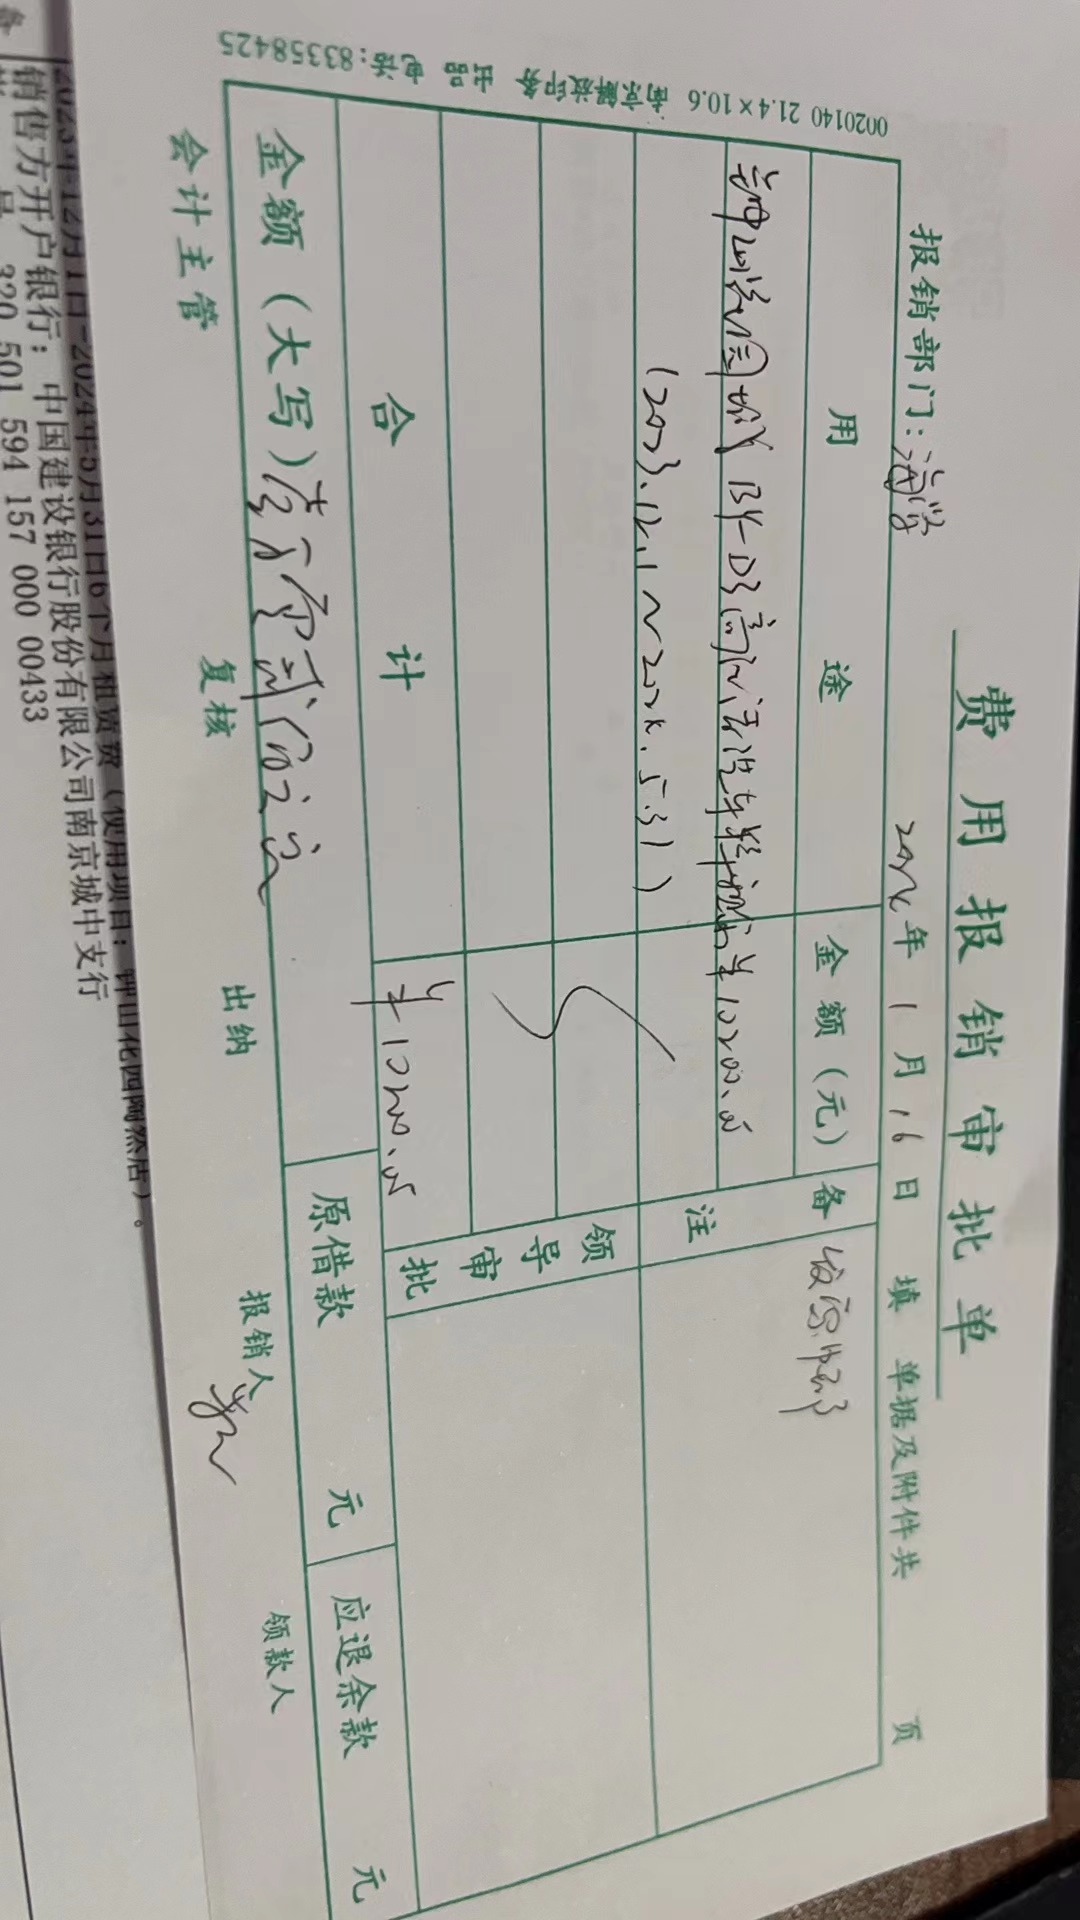 费用报销审批单
报销部门：
2024年1月16日 填 单据及附件共 页
用途 金额（元） 备注
￥10200.00
(2023.12.1～2024.5.31)
领导审批
合计 ￥10200.00
金额（大写）壹万零贰佰元 原借款 元 应退余款 元
会计主管 复核 出纳 报销人 领款人
0020140 21.4×10.6 南京解放印务 出品 电话:83358425
2023年12月1日-2024年5月31日6个月租赁费（使用项目：钟山花园陶然居）。
销售方开户银行：中国建设银行股份有限公司南京城中支行
320 501 594 157 000 00433